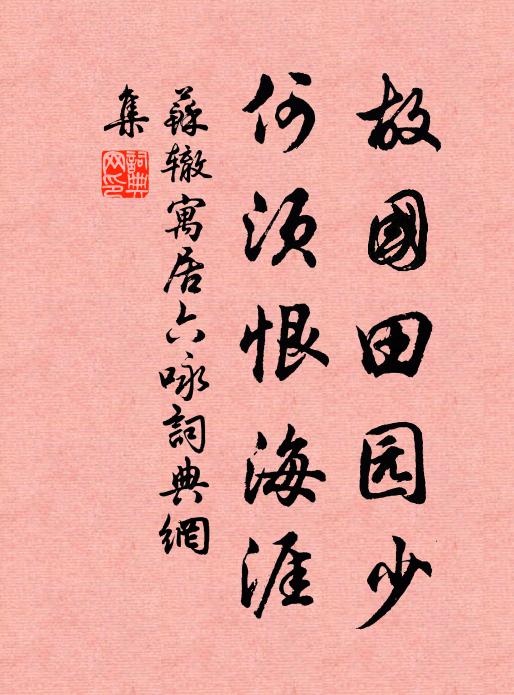 故國田园少
何须恨海涯
蘇辙寓居六咏詞典網
集
詞典
网印